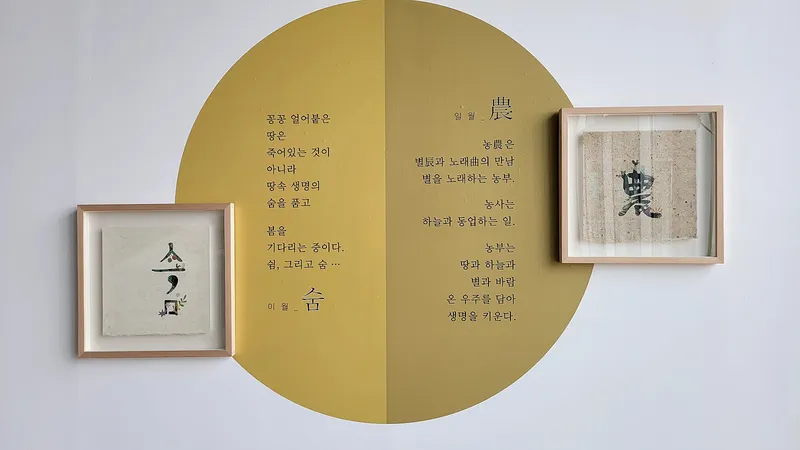 꽁꽁 얼어붙은
땅은
죽어있는 것이
아니라
땅속 생명의
숨을 품고
봄을
기다리는 중이다.
쉼, 그리고 숨 …
이월_ 숨
일월_ 農
농農은
별辰과 노래曲의 만남
별을 노래하는 농부.
농사는
하늘과 동업하는 일.
농부는
땅과 하늘과
별과 바람
온 우주를 담아
생명을 키운다.
숨
農